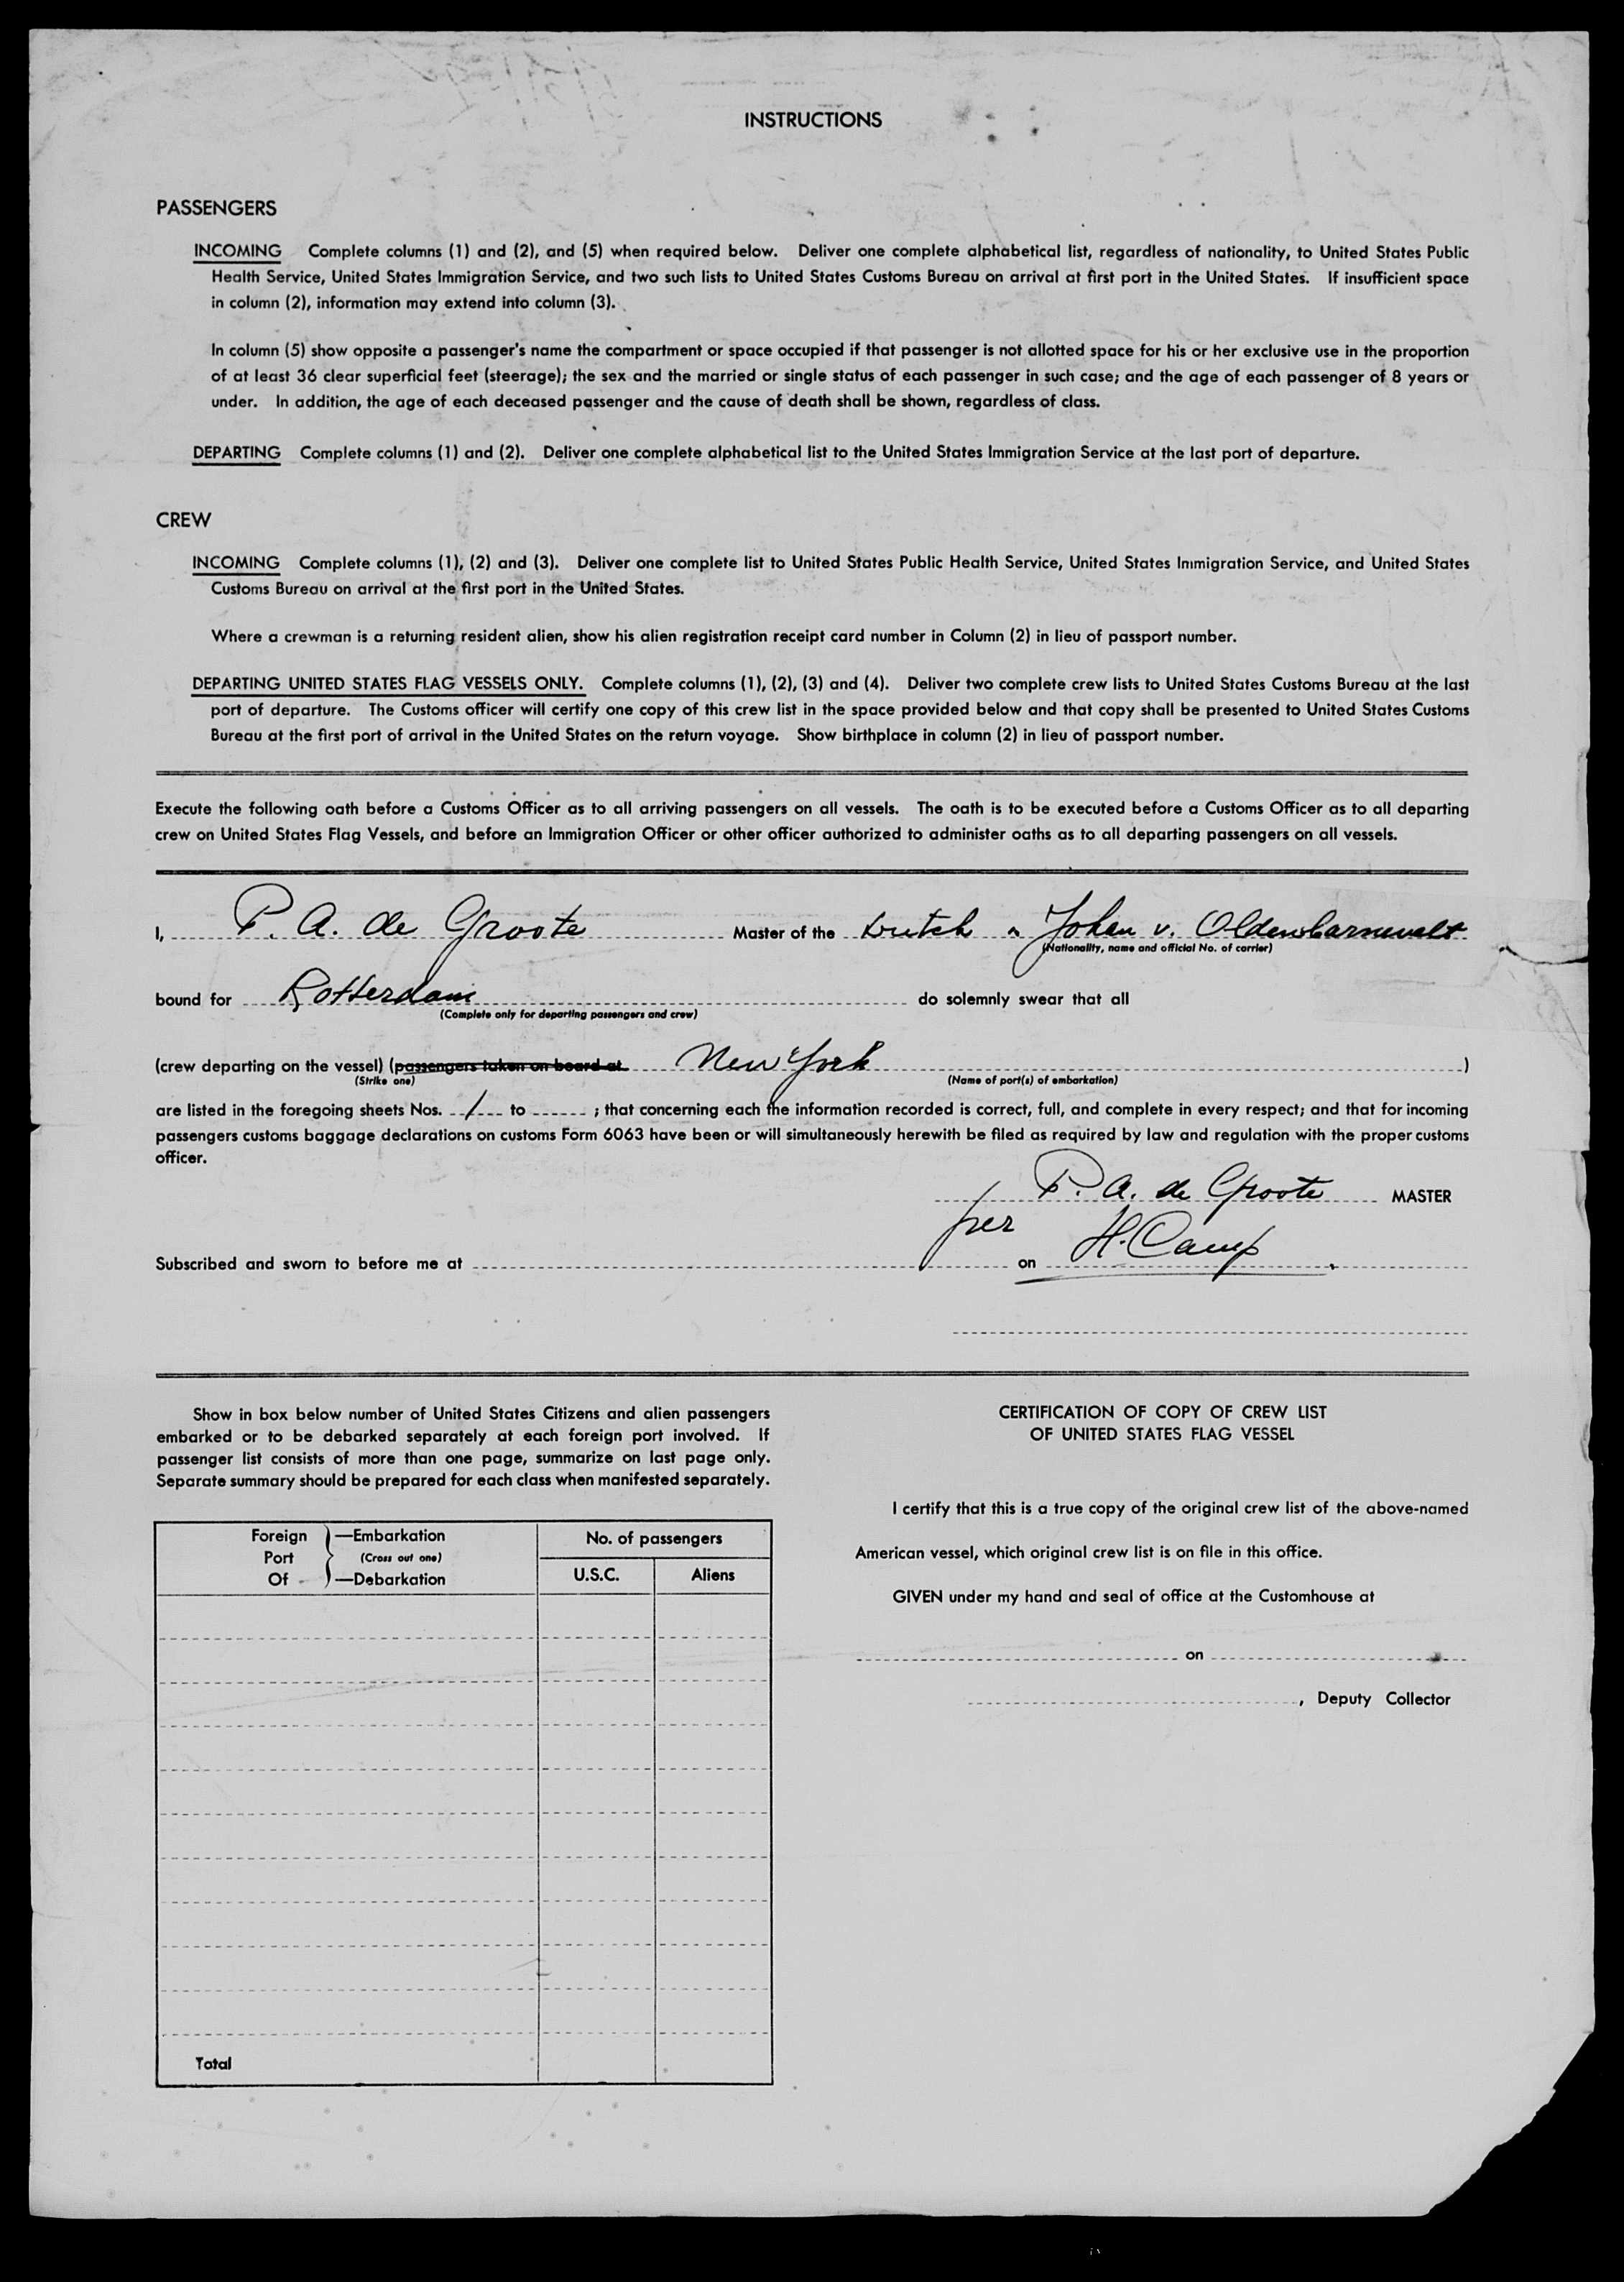 INSTRUCTIONS
PASSENGERS
INCOMING Complete columns (1) and (2), and (5) when required below. Deliver one complete alphabetical list, regardless of nationality, to United States Public
Health Service, United States Immigration Service, and two such lists to United States Customs Bureau on arrival at first port in the United States. If insufficient space
in column (2), information may extend into column (3).
In column (5) show opposite a passenger's name the compartment or space occupied if that passenger is not allotted space for his or her exclusive use in the proportion
of at least 36 clear superficial feet (steerage); the sex and the married or single status of each passenger in such case; and the age of each passenger of 8 years or
under. In addition, the age of each deceased passenger and the cause of death shall be shown, regardless of class.
DEPARTING Complete columns (1) and (2). Deliver one complete alphabetical list to the United States Immigration Service at the last port of departure.
CREW
INCOMING Complete columns (1), (2) and (3). Deliver one complete list to United States Public Health Service, United States Immigration Service, and United States
Customs Bureau on arrival at the first port in the United States.
Where a crewman is a returning resident alien, show his alien registration receipt card number in Column (2) in lieu of passport number.
DEPARTING UNITED STATES FLAG VESSELS ONLY. Complete columns (1), (2), (3) and (4). Deliver two complete crew lists to United States Customs Bureau at the last
port of departure. The Customs officer will certify one copy of this crew list in the space provided below and that copy shall be presented to United States Customs
Bureau at the first port of arrival in the United States on the return voyage. Show birthplace in column (2) in lieu of passport number.
Execute the following oath before a Customs Officer as to all arriving passengers on all vessels. The oath is to be executed before a Customs Officer as to all departing
crew on United States Flag Vessels, and before an Immigration Officer or other officer authorized to administer oaths as to all departing passengers on all vessels.
I, P. A. de Groote Master of the Dutch Johan v. Oldenbarnevelt
(Nationality, name and official No. of carrier)
bound for Rotterdam do solemnly swear that all
(Complete only for departing passengers and crew)
(crew departing on the vessel) (passengers taken on board at New York )
(Strike one) (Name of port(s) of embarkation)
are listed in the foregoing sheets Nos. 1 to ; that concerning each the information recorded is correct, full, and complete in every respect; and that for incoming
passengers customs baggage declarations on customs Form 6063 have been or will simultaneously herewith be filed as required by law and regulation with the proper customs
officer.
P. A. de Groote MASTER
per H. Camp
Subscribed and sworn to before me at on
Show in box below number of United States Citizens and alien passengers
embarked or to be debarked separately at each foreign port involved. If
passenger list consists of more than one page, summarize on last page only.
Separate summary should be prepared for each class when manifested separately.
Foreign —Embarkation
Port (Cross out one)
Of —Debarkation
No. of passengers
U.S.C. Aliens
Total
CERTIFICATION OF COPY OF CREW LIST
OF UNITED STATES FLAG VESSEL
I certify that this is a true copy of the original crew list of the above-named
American vessel, which original crew list is on file in this office.
GIVEN under my hand and seal of office at the Customhouse at
on
, Deputy Collector